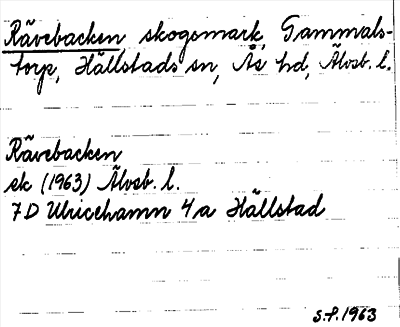 Rävebacken skogsmark, Gammals-
torp, Hällstads sn, Ås hd, Älvsb. l.
Rävebacken
ek (1963) Älvsb. l.
7D Ulricehamn 4a Hällstad
S.P. 1963